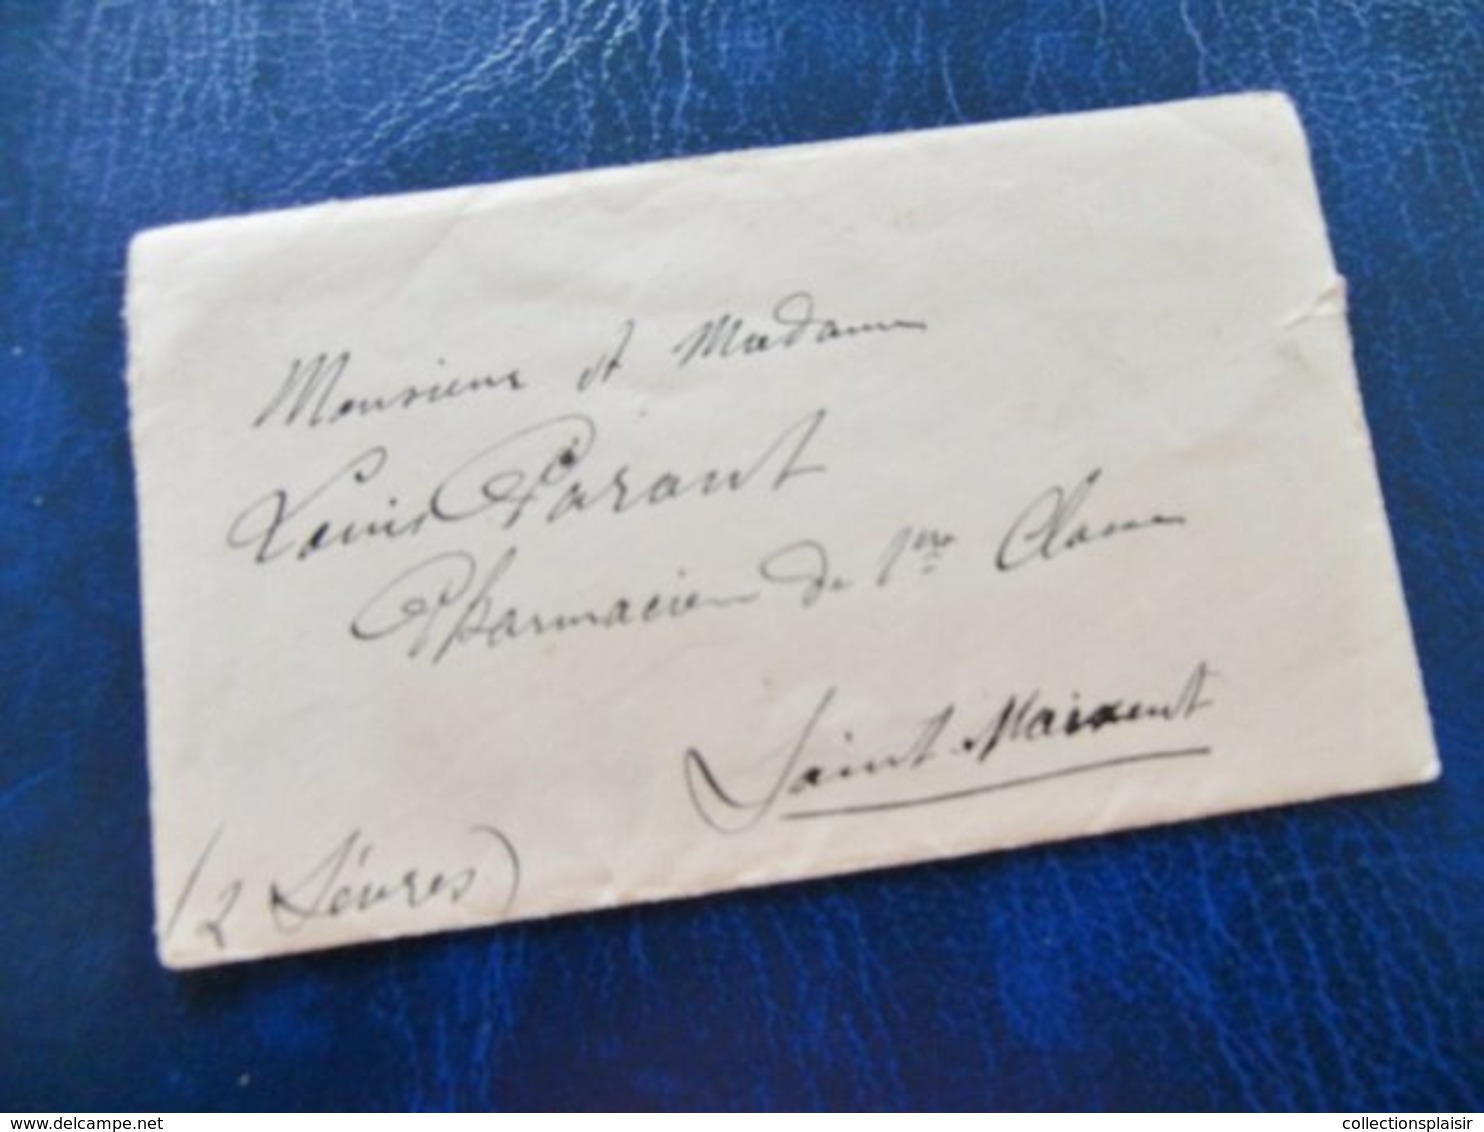 Monsieur et Madame
Louis Parant
Pharmacien de 1ère Classe
Saint-Maixent
(2 Sèvres)
collectionsplaisir